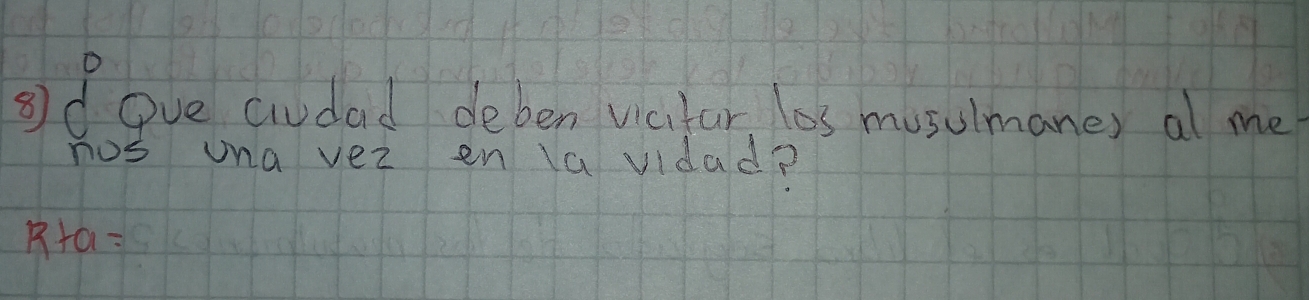 8) ¿Que ciudad deben vicitar los musulmanes al me-
nos una vez en la vidad?
R+a=